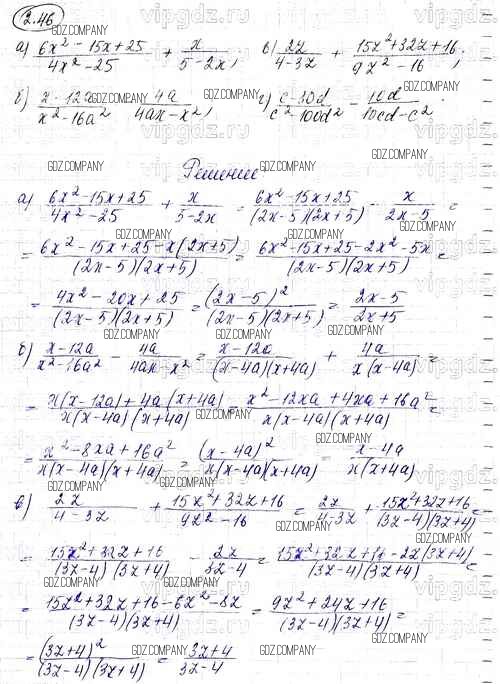 2.46
а) (6x² - 15x + 25)/(4x² - 25) + x/(5 - 2x), в) 2z/(4 - 3z) + (15z² + 32z + 16)/(9z² - 16);
б) (x - 12a)/(x² - 16a²) - 4a/(4ax - x²), г) (c - 30d)/(c² - 100d²) - 10d/(10cd - c²).
Решение
а) (6x² - 15x + 25)/(4x² - 25) + x/(5 - 2x) = (6x² - 15x + 25)/((2x - 5)(2x + 5)) - x/(2x - 5) =
= (6x² - 15x + 25 - x(2x + 5))/((2x - 5)(2x + 5)) = (6x² - 15x + 25 - 2x² - 5x)/((2x - 5)(2x + 5)) =
= (4x² - 20x + 25)/((2x - 5)(2x + 5)) = (2x - 5)²/((2x - 5)(2x + 5)) = (2x - 5)/(2x + 5)
б) (x - 12a)/(x² - 16a²) - 4a/(4ax - x²) = (x - 12a)/((x - 4a)(x + 4a)) + 4a/(x(x - 4a)) =
= (x(x - 12a) + 4a(x + 4a))/(x(x - 4a)(x + 4a)) = (x² - 12xa + 4xa + 16a²)/(x(x - 4a)(x + 4a)) =
= (x² - 8xa + 16a²)/(x(x - 4a)(x + 4a)) = (x - 4a)²/(x(x - 4a)(x + 4a)) = (x - 4a)/(x(x + 4a))
в) 2z/(4 - 3z) + (15z² + 32z + 16)/(9z² - 16) = 2z/(4 - 3z) + (15z² + 32z + 16)/((3z - 4)(3z + 4)) =
= (15z² + 32z + 16)/((3z - 4)(3z + 4)) - 2z/(3z - 4) = (15z² + 32z + 16 - 2z(3z + 4))/((3z - 4)(3z + 4)) =
= (15z² + 32z + 16 - 6z² - 8z)/((3z - 4)(3z + 4)) = (9z² + 24z + 16)/((3z - 4)(3z + 4)) =
= (3z + 4)²/((3z - 4)(3z + 4)) = (3z + 4)/(3z - 4)
GDZ.COMPANY
vipgdz.com